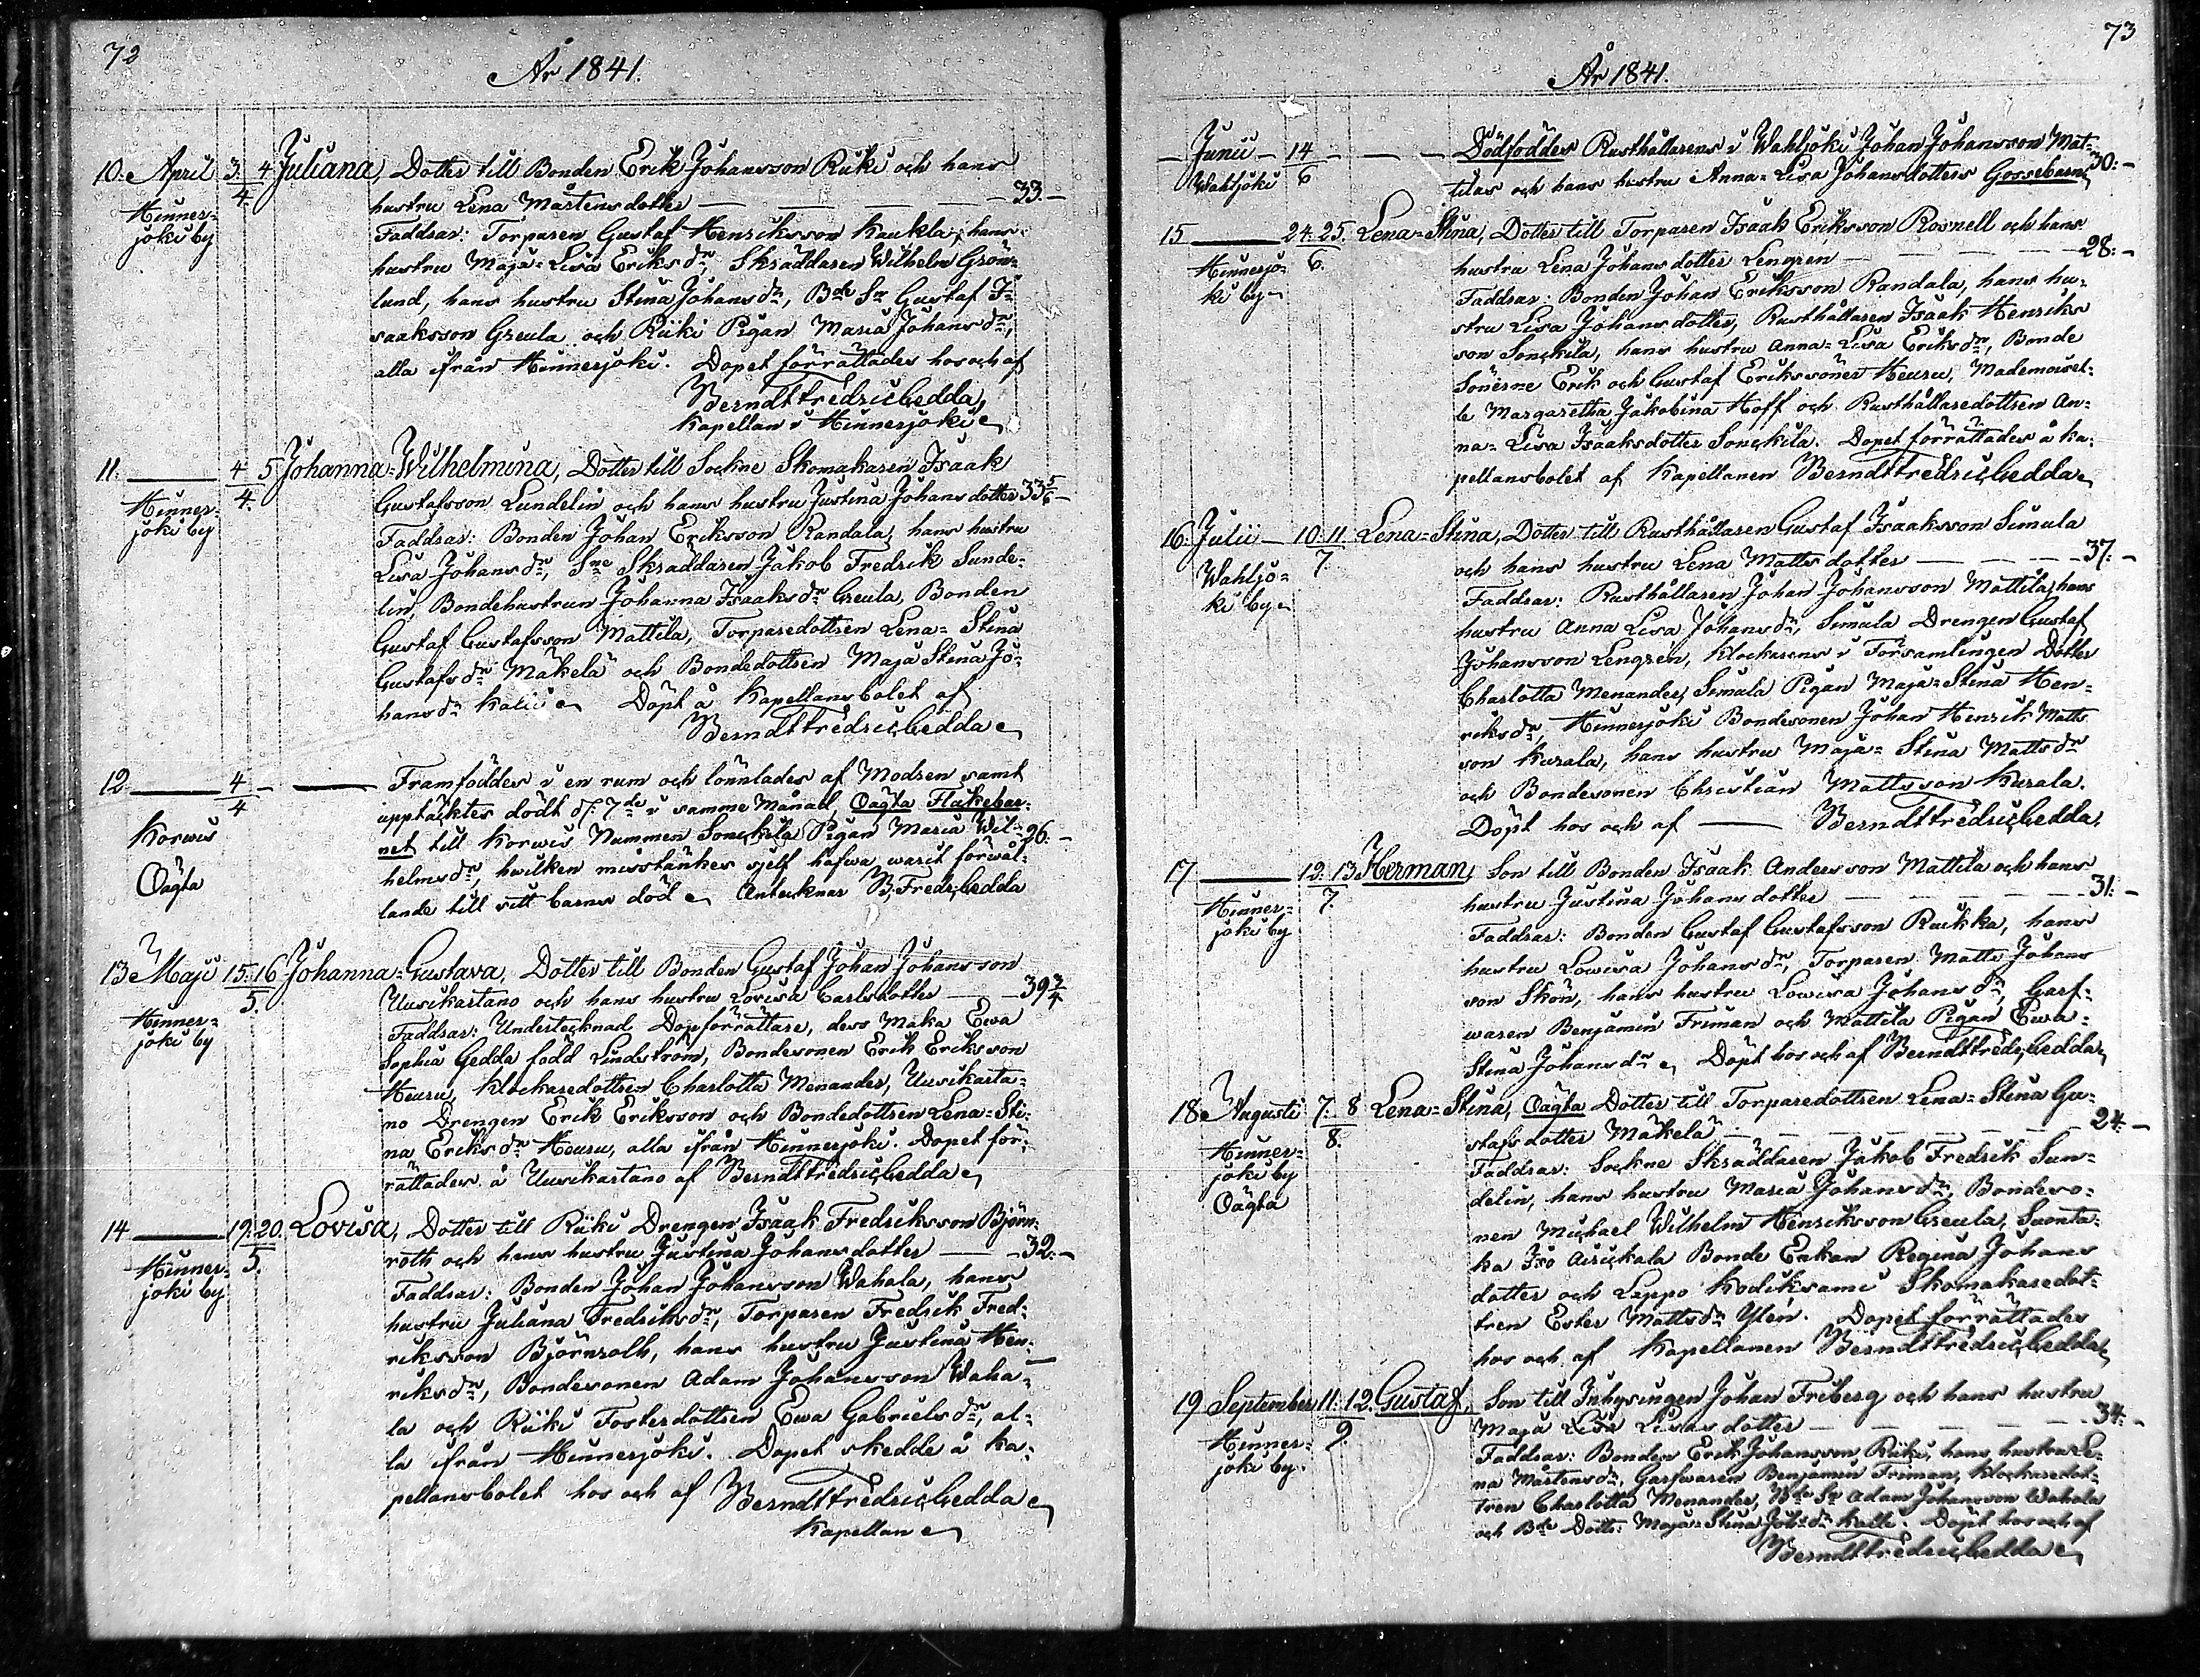 72
År 1841.
10. April 3. 4 Juliana, Dotter till Bonden Erik Johansson Riiki och hans
4.
Hinner-
joki by
hustru Lena Mårtensdotter — — — — 33. —
Faddrar: Torparen Gustaf Henriksson Kaukla, hans
hustru Maja-Lisa Eriksdr, Skräddaren Wilhelm Grön-
lund, hans hustru Stina Johansdr, Bde Sn Gustaf I-
saaksson Greula och Riiki Pigan Maria Johansdr,
alla ifrån Hinnerjoki. Dopet förrättades hos och af
Berndt Fredric Gedda,
Kapellan i Hinnerjoki
11. — 4 5 Johanna-Wilhelmina, Dotter till Sockne Skomakaren Isaak
4.
Hinner-
joki by
Gustafsson Lundelin och hans hustru Justina Johansdotter 33 5/6 —
Faddrar: Bonden Johan Eriksson Randala, hans hustru
Lisa Johansdr, Sne Skräddaren Jakob Fredrik Sunde-
lin, Bondehustrun Johanna Isaaksdr Greula, Bonden
Gustaf Gustafsson Mattila, Torparedottren Lena-Stina
Gustafsdr Mäkelä och Bondedottren Maja Stina Jo-
hansdr Döpt å Kapellansbolet af
Berndt Fredric Gedda
12. — 4 — — Framföddes i en rum och lönnlades af Modren samt
4
Korwis
Oägta
upptäcktes dödt d. 7de i samme Månad, Oägta Flickebar-
net till Korwis Nummen Sonckila Pigan Maria Wil- 26. —
helmsdr, hwilken misstänkes sjelf hafwa warit förwål-
lande till sitt barns död Antecknar B. Fredr. Gedda
13 Maji 15. 16 Johanna-Gustava, Dotter till Bonden Gustaf Johan Johansson
5.
Hinner-
joki by
Uusikartano och hans hustru Lovisa Carlsdotter — 39 3/4
Faddrar: Undertecknad Dopförrättare, dess Maka Ewa
Sophia Gedda född Lindström, Bondesonen Erik Eriksson
Heuru, Klockaredottren Charlotta Menander, Uusikarta-
no Drengen Erik Eriksson och Bondedottren Lena-Sti-
na Eriksdr Heuru, alla ifrån Hinnerjoki. Dopet för-
rättades å Uusikartano af Berndt Fredric Gedda
14 — 19. 20. Lovisa, Dotter till Riiki Drengen Isaak Fredriksson Björn-
5.
Hinner-
joki by
roth och hans hustru Justina Johansdotter — 32. —
Faddrar: Bonden Johan Johansson Wahala, hans
hustru Juliana Fredriksdr, Torparen Fredrik Fred-
riksson Björnroth, hans hustru Justina Hen-
riksdr, Bondesonen Adam Johansson Waha-
la och Riiki Fosterdottren Ewa Gabrielsdr, al-
la ifrån Hinnerjoki. Dopet skedde å Ka-
pellansbolet hos och af Berndt Fredric Gedda
Kapellan
73
År 1841.
— Junii — 14 — — — Dödföddes Rusthållarens i Wahljoki Johan Johansson Mat-
6
Wahljoki
tilas och hans hustru Anna-Lisa Johansdotters Gossebarn 30. —
15 — 24. 25. Lena-Stina, Dotter till Torparen Isaak Eriksson Rosnell och hans
6.
Hinnerjo-
ki by
hustru Lena Johansdotter Lengren — — — 28. —
Faddrar: Bonden Johan Eriksson Randala, hans hu-
stru Lisa Johansdotter, Rusthållaren Isaak Henriks
son Sonckila, hans hustru Anna-Lisa Eriksdr, Bonde
Sönerne Erik och Gustaf Erikssöner Heuru, Mademoisel-
le Margaretha Jakobina Hoff och Rusthållaredottren An-
na-Lisa Isaaksdotter Sonckila. Dopet förrättades å Ka-
pellansbolet af Kapellanen Berndt Fredric Gedda
16. Julii — 10. 11. Lena-Stina, Dotter till Rusthållaren Gustaf Isaaksson Simula
7.
Wahljo-
ki by
och hans hustru Lena Mattsdotter — — — 37. —
Faddrar: Rusthållaren Johan Johansson Mattila, hans
hustru Anna Lisa Johansdr, Simula Drengen Gustaf
Johansson Lengren, Klockarens i Församlingen Dotter
Charlotta Menander, Simula Pigan Maja-Stina Hen-
riksdr, Hinnerjoki Bondesonen Johan Henrik Matts
son Kurala, hans hustru Maja-Stina Mattsdr
och Bondesonen Christian Mattsson Kurala.
Döpt hos och af — Berndt Fredric Gedda.
17 — 12. 13 Herman, Son till Bonden Isaak Andersson Mattila och hans
7.
Hinner-
joki by
hustru Justina Johansdotter — — — 31. —
Faddrar: Bonden Gustaf Gustafsson Ruikka, hans
hustru Lowisa Johansdr, Torparen Matts Johans
son Skön, hans hustru Lowisa Johansdr, Garf-
waren Benjamin Friman och Mattila Pigan Ewa-
Stina Johansdr Döpt hos och af Berndt Fredr. Gedda
18. Augusti 7. 8 Lena-Stina, Oägta Dotter till Torparedottren Lena-Stina Gu-
8.
Hinner-
joki by
Oägta
stafsdotter Mäkelä — — — 24. —
Faddrar: Sockne Skräddaren Jakob Fredrik Sun-
delin, hans hustru Maria Johansdr, Bondeso-
nen Michael Wilhelm Henriksson Greula, Suonta-
ka Iso Airickala Bonde Enkan Regina Johans
dotter och Lappo Kodiksami Skomakaredot-
tren Ester Mattsdr Ylén. Dopet förrättades
hos och af Kapellanen Berndt Fredric Gedda
19 September 11. 12. Gustaf, Son till Inhysingen Johan Friberg och hans hustru
9.
Hinner-
joki by.
Maja Lisa Lisasdotter — — — 34. —
Faddrar: Bonden Erik Johansson Riiki, hans hustru Le-
na Mårtensdr, Garfwaren Benjamin Friman, Klockaredot-
tren Charlotta Menander, Bde Sn Adam Johansson Wahala
och Bde Dottr. Maja-Stina Johsdr Döpt hos och af
Berndt Fredric Gedda